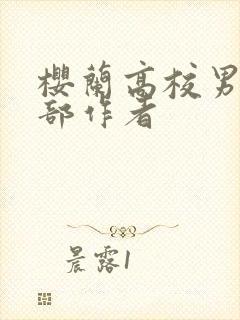 櫻蘭高校男
部作者
晨露1